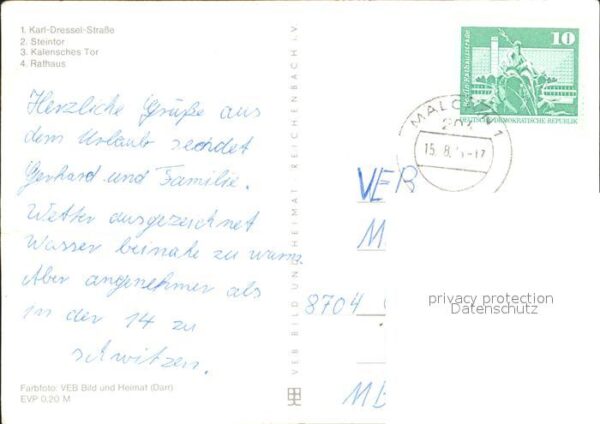 1. Karl-Dressel-Straße
2. Steintor
3. Kalensches Tor
4. Rathaus
Herzliche Grüße aus
dem Urlaub sendet
Gerhard und Familie.
Wetter ausgezeichnet
Wasser beinahe zu warm.
Aber angenehmer als
in der 14 zu
schwitzen.
Farbfoto: VEB Bild und Heimat (Darr)
EVP 0,20 M
VEB BILD UND HEIMAT REICHENBACH i.V
10
Berlin Rathausstraße
DEUTSCHE DEMOKRATISCHE REPUBLIK
MALCHIN 1
15. 8. -17
VEB
M
8704
ME
privacy protection
Datenschutz